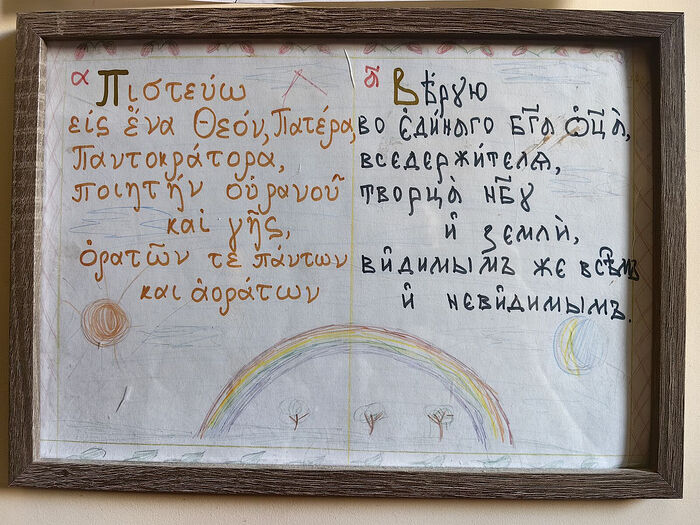 α Πιστεύω
εἰς ἕνα Θεόν, Πατέρα,
Παντοκράτορα,
ποιητήν οὐρανοῦ
καὶ γῆς,
ὁρατῶν τε πάντων
και ἀοράτων
а҃ Вѣрую
во є҆ди́наго бг҃а ѻ҆ц҃а̀,
вседержи́телѧ,
творца̀ нб҃у
и҆ землѝ,
ви́димымъ же всѣ̑мъ
и҆ неви́димымъ.